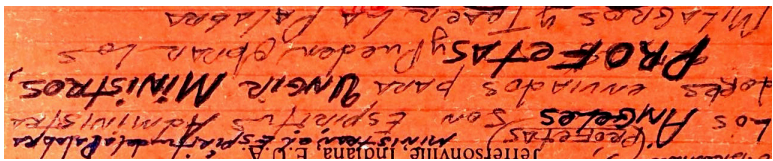 Jeffersonville Indiana E.U.A.
(PROFETAS) MINISTRAN el ESPIRITU de la Palabra
LOS ANGELES SON ESPIRITUS ADMINISTRA
DORES ENVIADOS PARA UNGIR MINISTROS,
PROFETAS y Pueden OBRAR LOS
MILAGROS y TRAER LA PALABRA